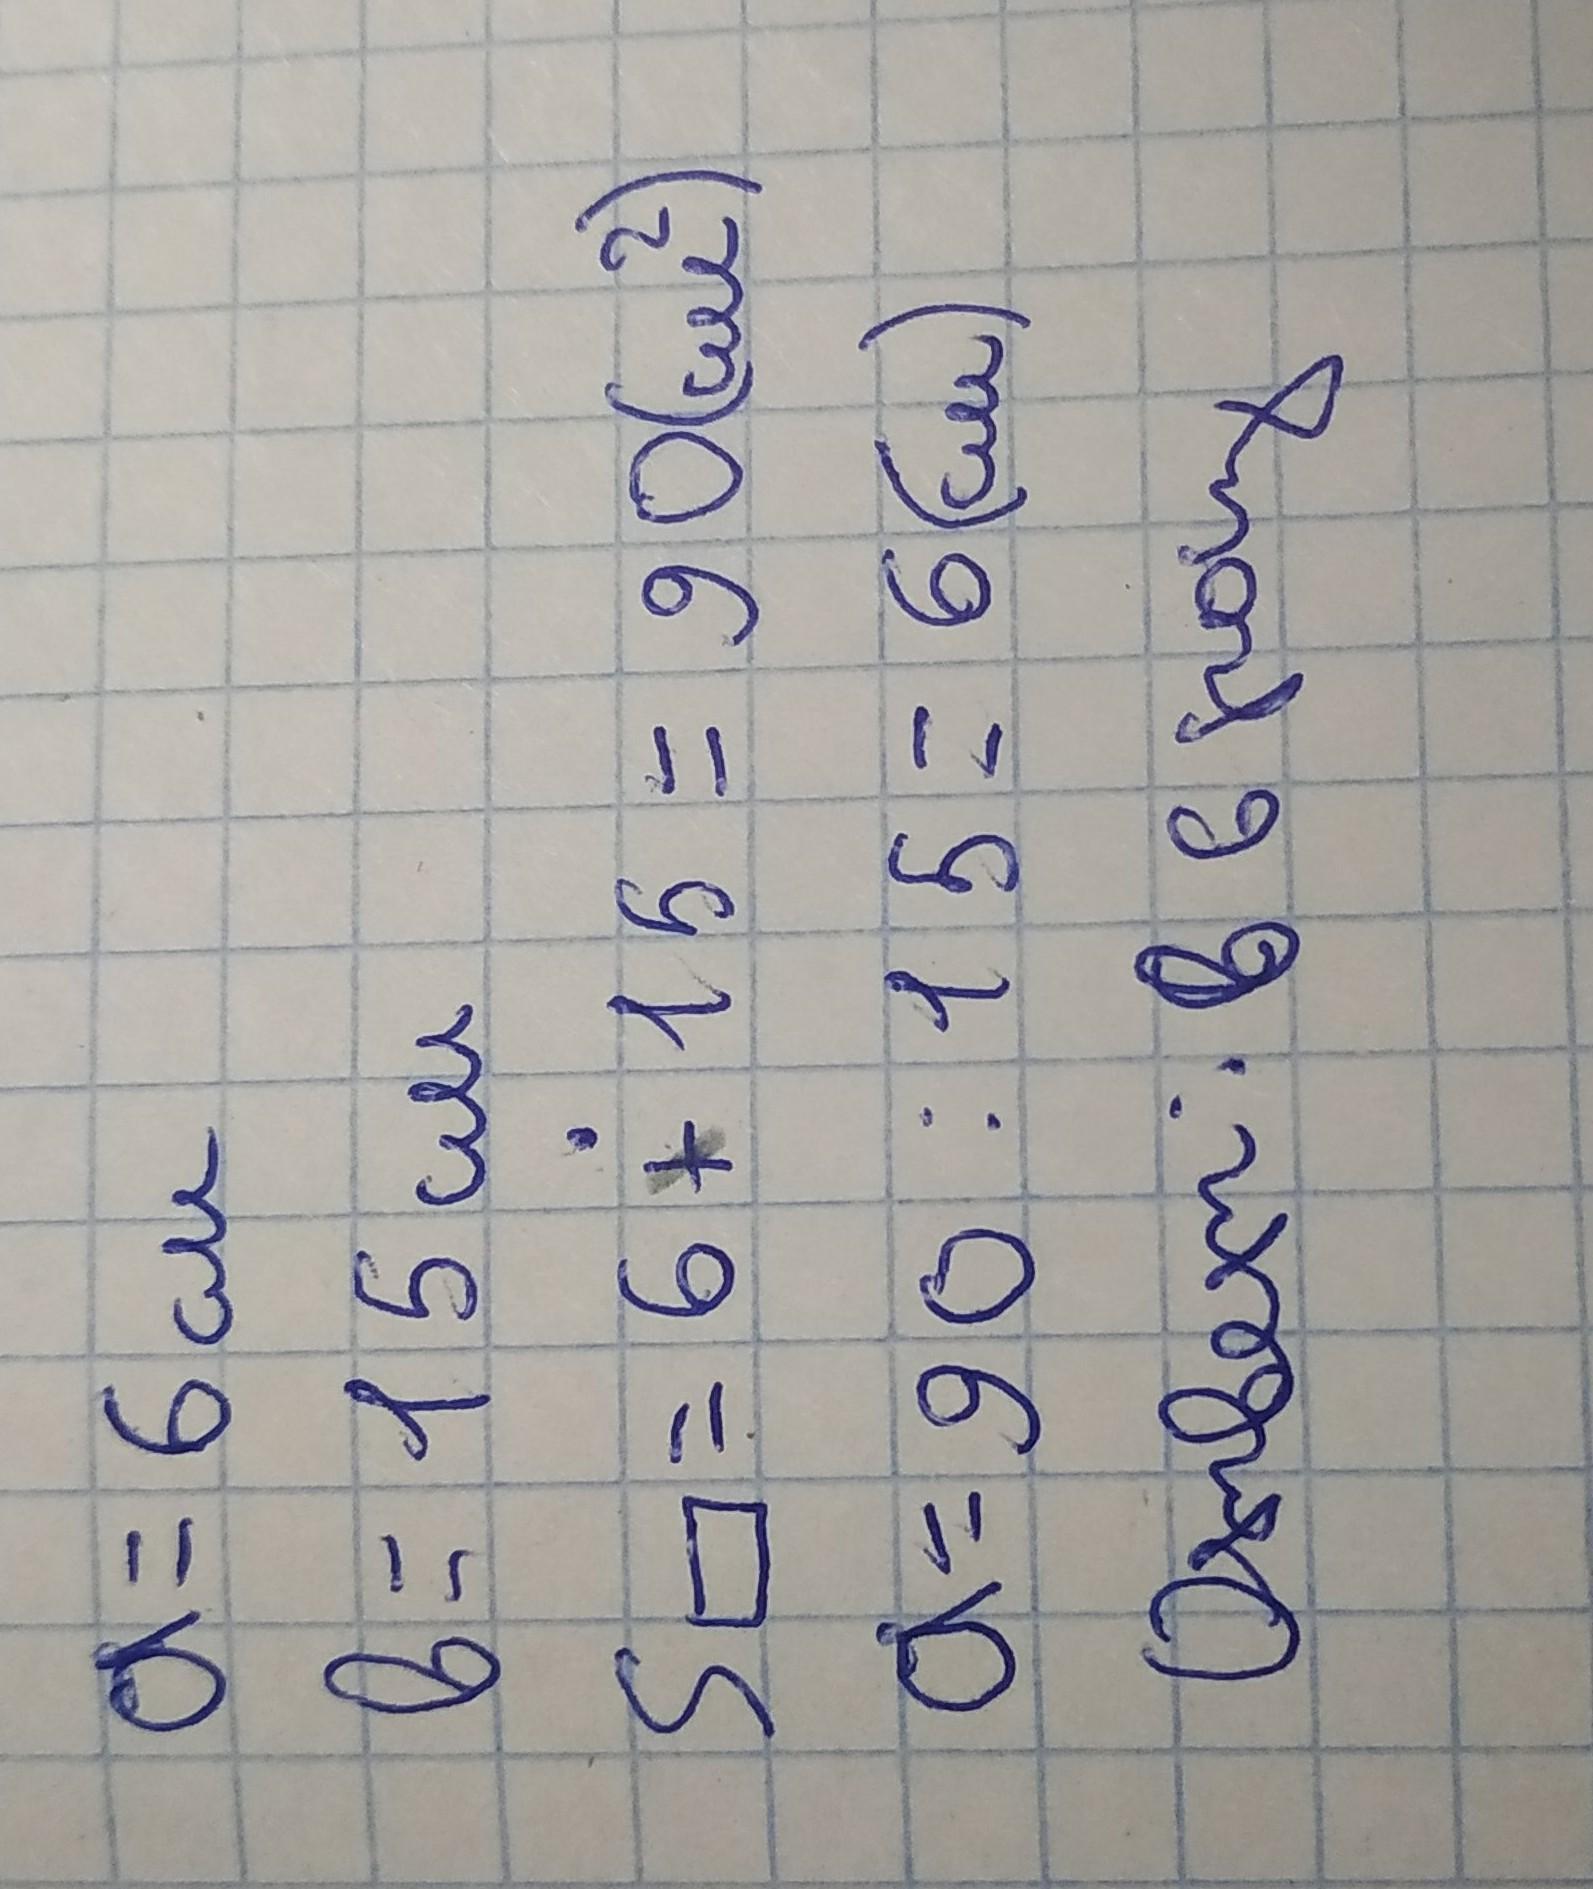 a = 6 см
в = 15 см
S▭ = 6 + 15 = 90 (см²)
a = 90 : 15 = 6 (см)
Ответ: в 6